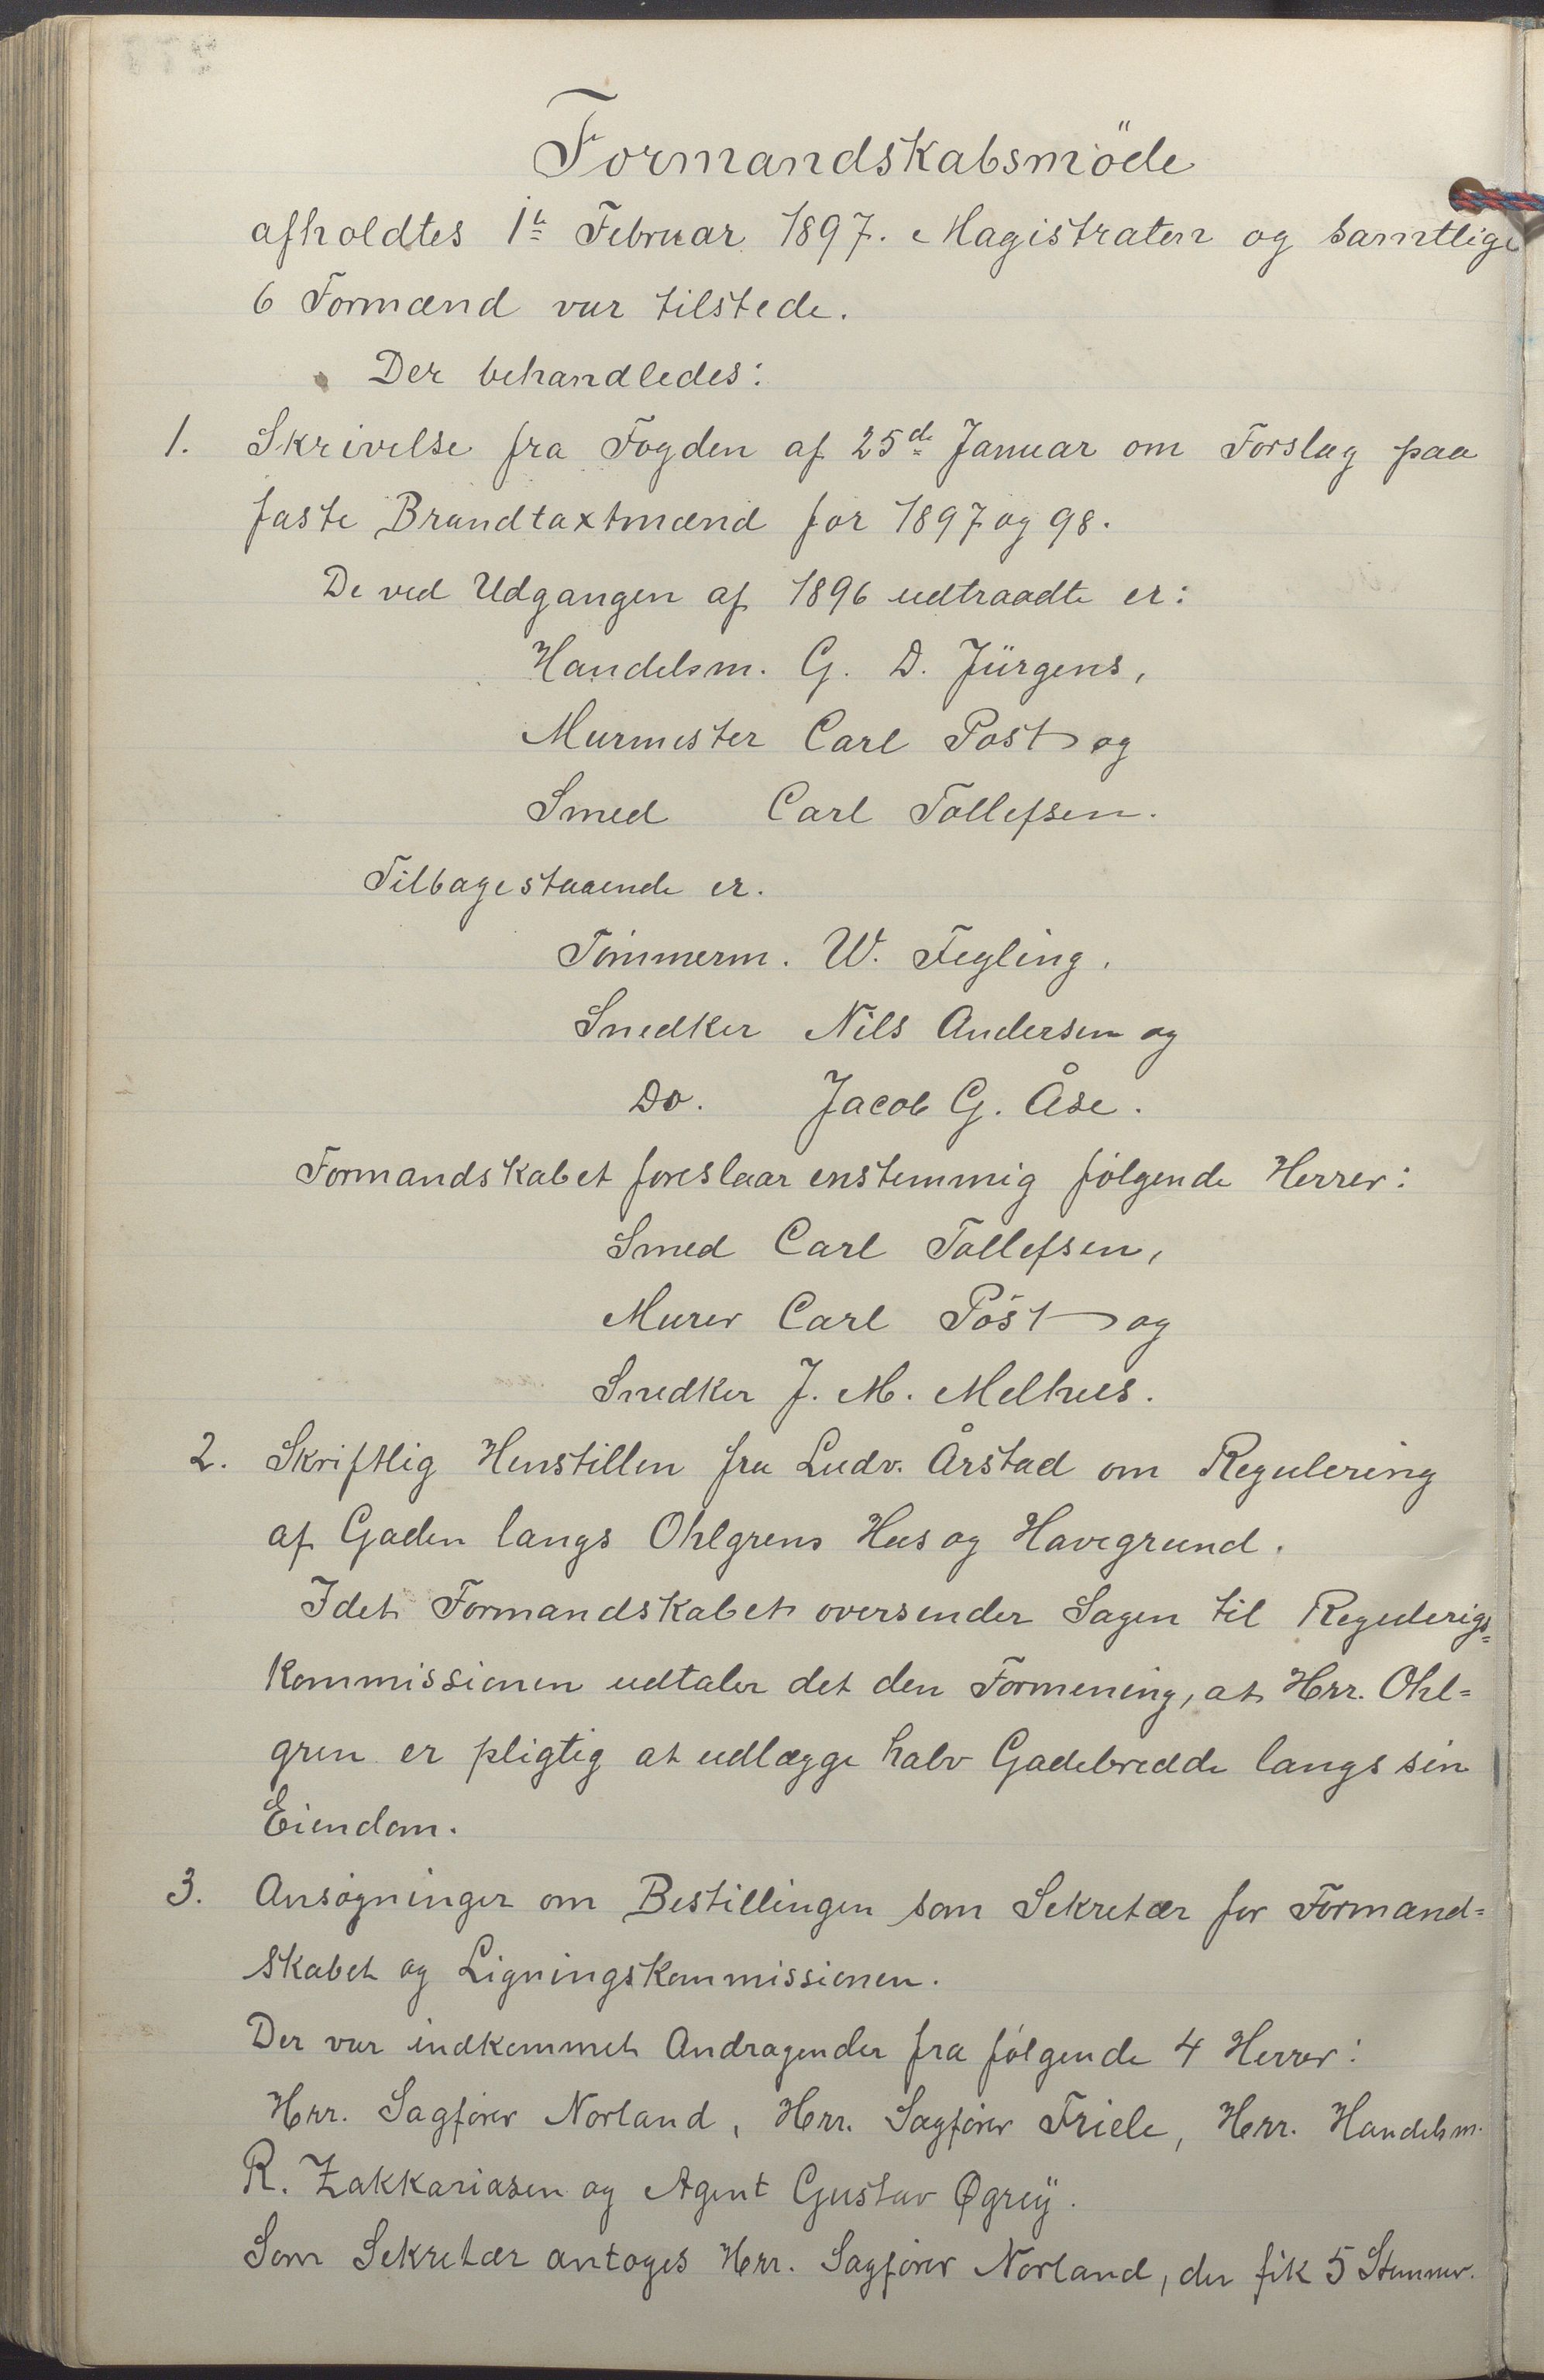 Formandskabsmöde
afholdtes 1te Februar 1897. Magistraten og samtlige
6 Formænd var tilstede.
Der behandledes:
1. Skrivelse fra Fogden af 25de Januar om Forslag paa
faste Brandtaxtmænd for 1897 og 98.
De ved Udgangen af 1896 udtraadte er:
Handelsm. G. D. Jürgens,
Murmester Carl Post og
Smed Carl Tollefsen.
Tilbagestaaende er.
Tømmerm. W. Fegling.
Snedker Nils Andersen og
Do. Jacob G. Åse.
Formandskabet foreslaar enstemmig følgende Herrer:
Smed Carl Tollefsen,
Murer Carl Post og
Snedker J. M. Melhus.
2. Skriftlig Henstillen fra Ludv. Årstad om Regulering
af Gaden langs Ohlgrens Hus og Havegrund.
Idet Formandskabet oversender Sagen til Regulerigs=
kommissionen udtaler det den Formening, at Hrr. Ohl=
gren er pligtig at udlægge halv Gadebredde langs sin
Eiendom.
3. Ansøgninger om Bestillingen som Sekretær for Formand=
skabet og Ligningskommissionen.
Der var indkommet Andragender fra følgende 4 Herrer:
Hrr. Sagfører Norland, Hrr. Sagfører Friele, Herr. Handelsm.
R. Zakkariasen og Agent Gustav Øgreÿ.
Som Sekretær antoges Hrr. Sagfører Norland, der fik 5 Stemmer.